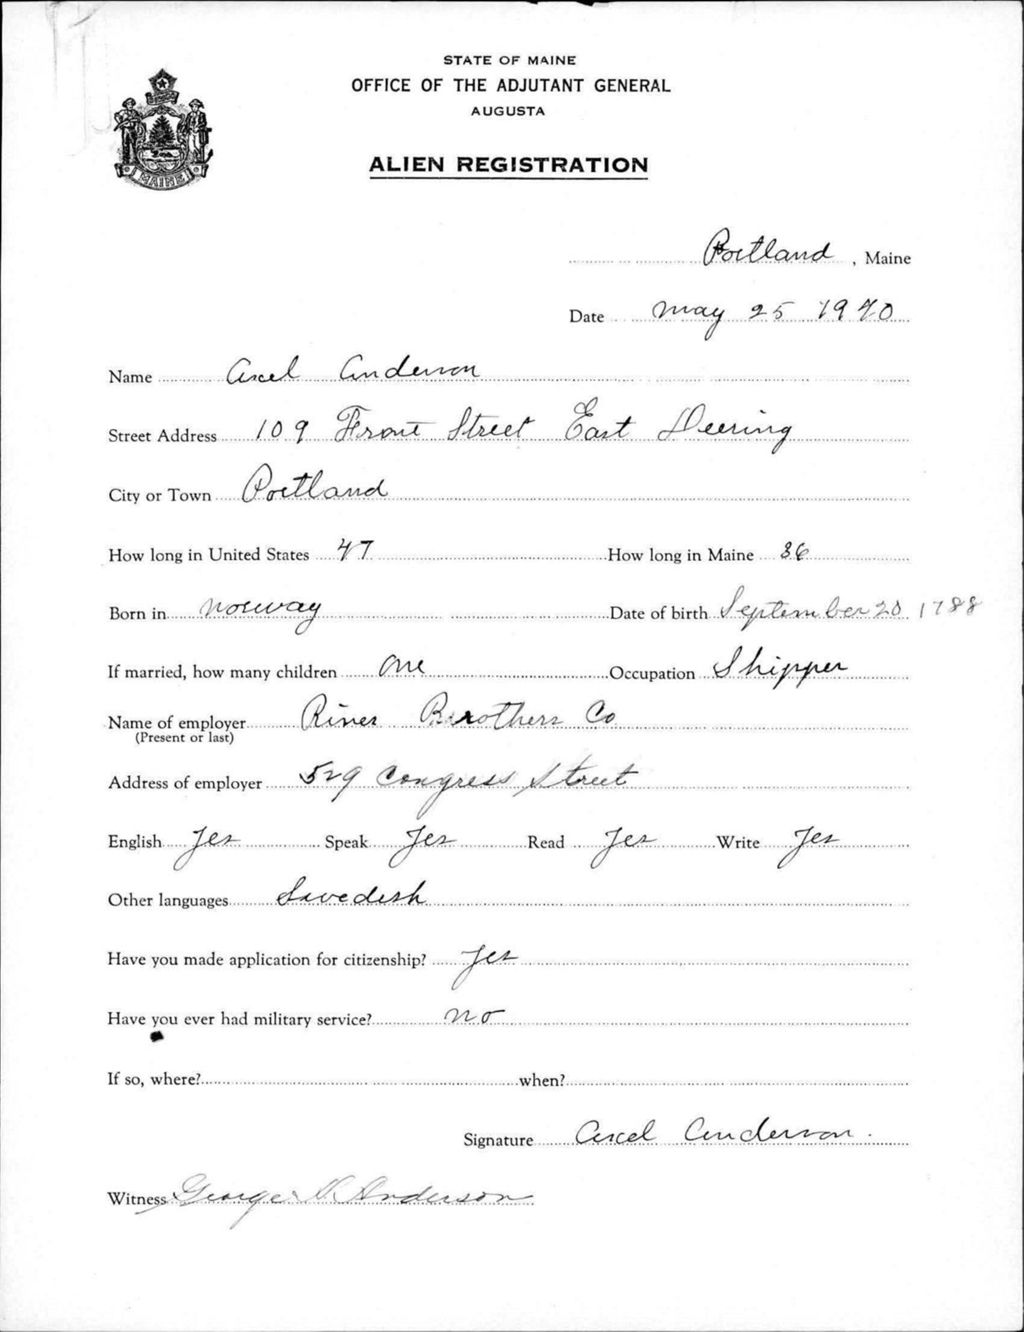 STATE OF MAINE
OFFICE OF THE ADJUTANT GENERAL
AUGUSTA
ALIEN REGISTRATION
MAINE
Portland, Maine
Date May 25 1940
Name Axel Anderson
Street Address 109 Front Street East Deering
City or Town Portland
How long in United States 47 How long in Maine 36
Born in Norway Date of birth September 20 1788
If married, how many children One Occupation Shipper
Name of employer Rines Brothers Co
(Present or last)
Address of employer 529 Congress Street
English Yes Speak Yes Read Yes Write Yes
Other languages Swedish
Have you made application for citizenship? Yes
Have you ever had military service? No
If so, where? when?
Signature Axel Anderson.
Witness George N. Anderson